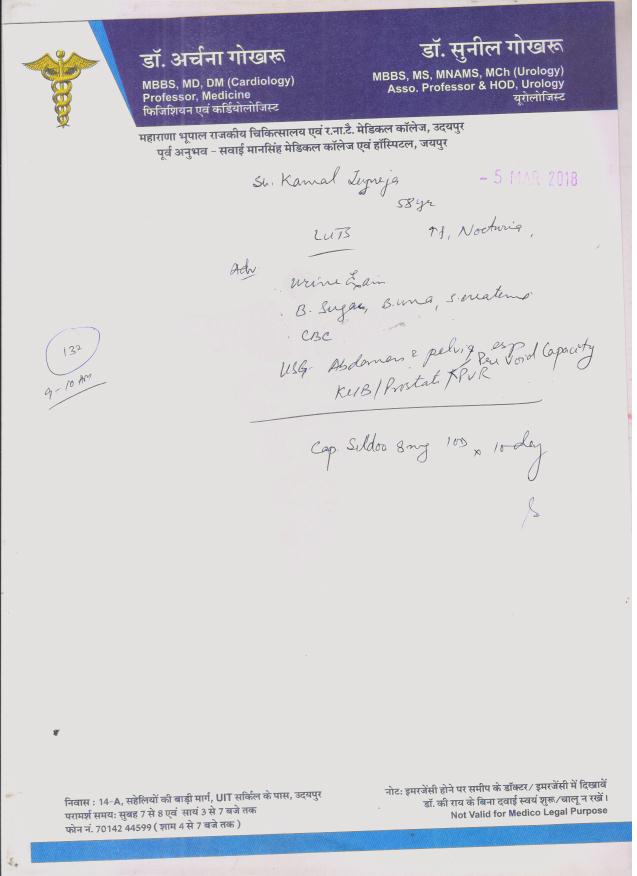 डॉ. अर्चना गोखरू
MBBS, MD, DM (Cardiology)
Professor, Medicine
फिजिशियन एवं कर्डियोलोजिस्ट
डॉ. सुनील गोखरू
MBBS, MS, MNAMS, MCh (Urology)
Asso. Professor & HOD, Urology
यूरोलोजिस्ट
महाराणा भूपाल राजकीय चिकित्सालय एवं र.ना.टै. मेडिकल कॉलेज, उदयपुर
पूर्व अनुभव - सवाई मानसिंह मेडिकल कॉलेज एवं हॉस्पिटल, जयपुर
- 5 MAR 2018
Kamal
58 yr
LUTS
Nocturia,
Adv
Urine Exam
B. Sugar, B. urea,
CBC
USG Abdomen & pelvis esp
Pre Void Capacity
KUB/Prostat / PVR
132
9-10 AM
Cap. Sildoo 8mg 1OD x 10 day
निवास : 14-A, सहेलियों की बाड़ी मार्ग, UIT सर्किल के पास, उदयपुर
परामर्श समय: सुबह 7 से 8 एवं सायं 3 से 7 बजे तक
फोन नं. 70142 44599 ( शाम 4 से 7 बजे तक )
नोट: इमरजेंसी होने पर समीप के डॉक्टर/ इमरजेंसी में दिखावें
डॉ. की राय के बिना दवाई स्वयं शुरू/चालू न रखें।
Not Valid for Medico Legal Purpose